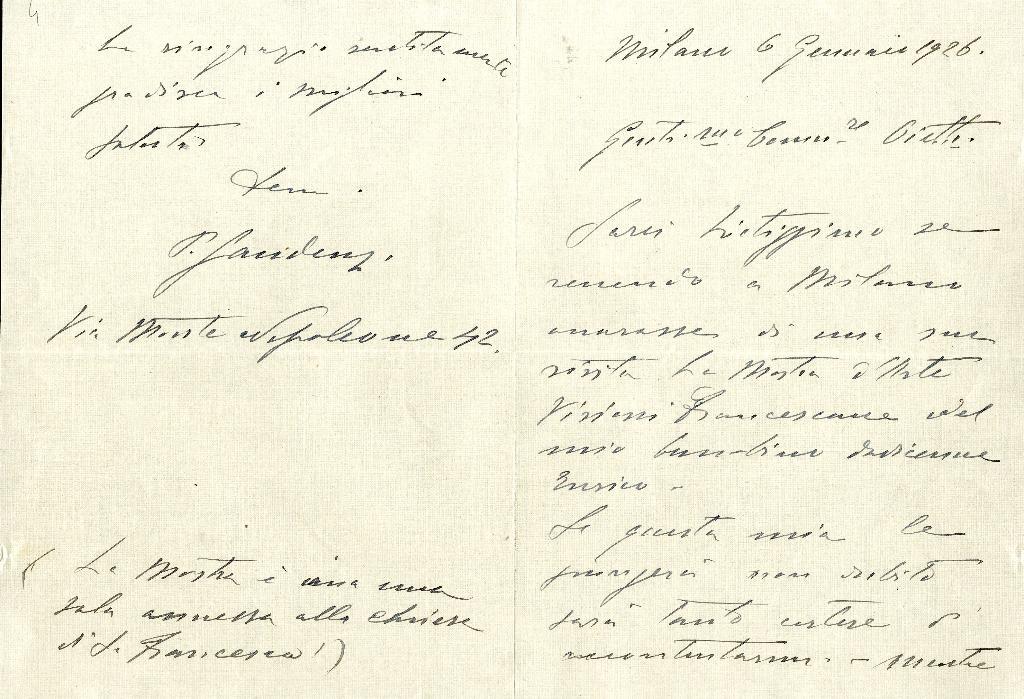 Milano 6 Gennaio 1926.
Gent.mo Comm.re Ojetti.
Sarei lietissimo se
venendo a Milano
onorasse di una sua
visita La Mostra d'Arte
Visioni Francescane del
mio bambino dodicenne
Enrico -
Se questa mia le
giungerà non dubito
sarà tanto cortese d'
accontentarmi. - mentre
La ringrazio sentitamente
gradisca i migliori
saluti
Dem.
P. Gaudenzi.
Via Monte Napoleone 42.
( La Mostra è in una
sala annessa alla chiesa
di S. Francesco! )
4